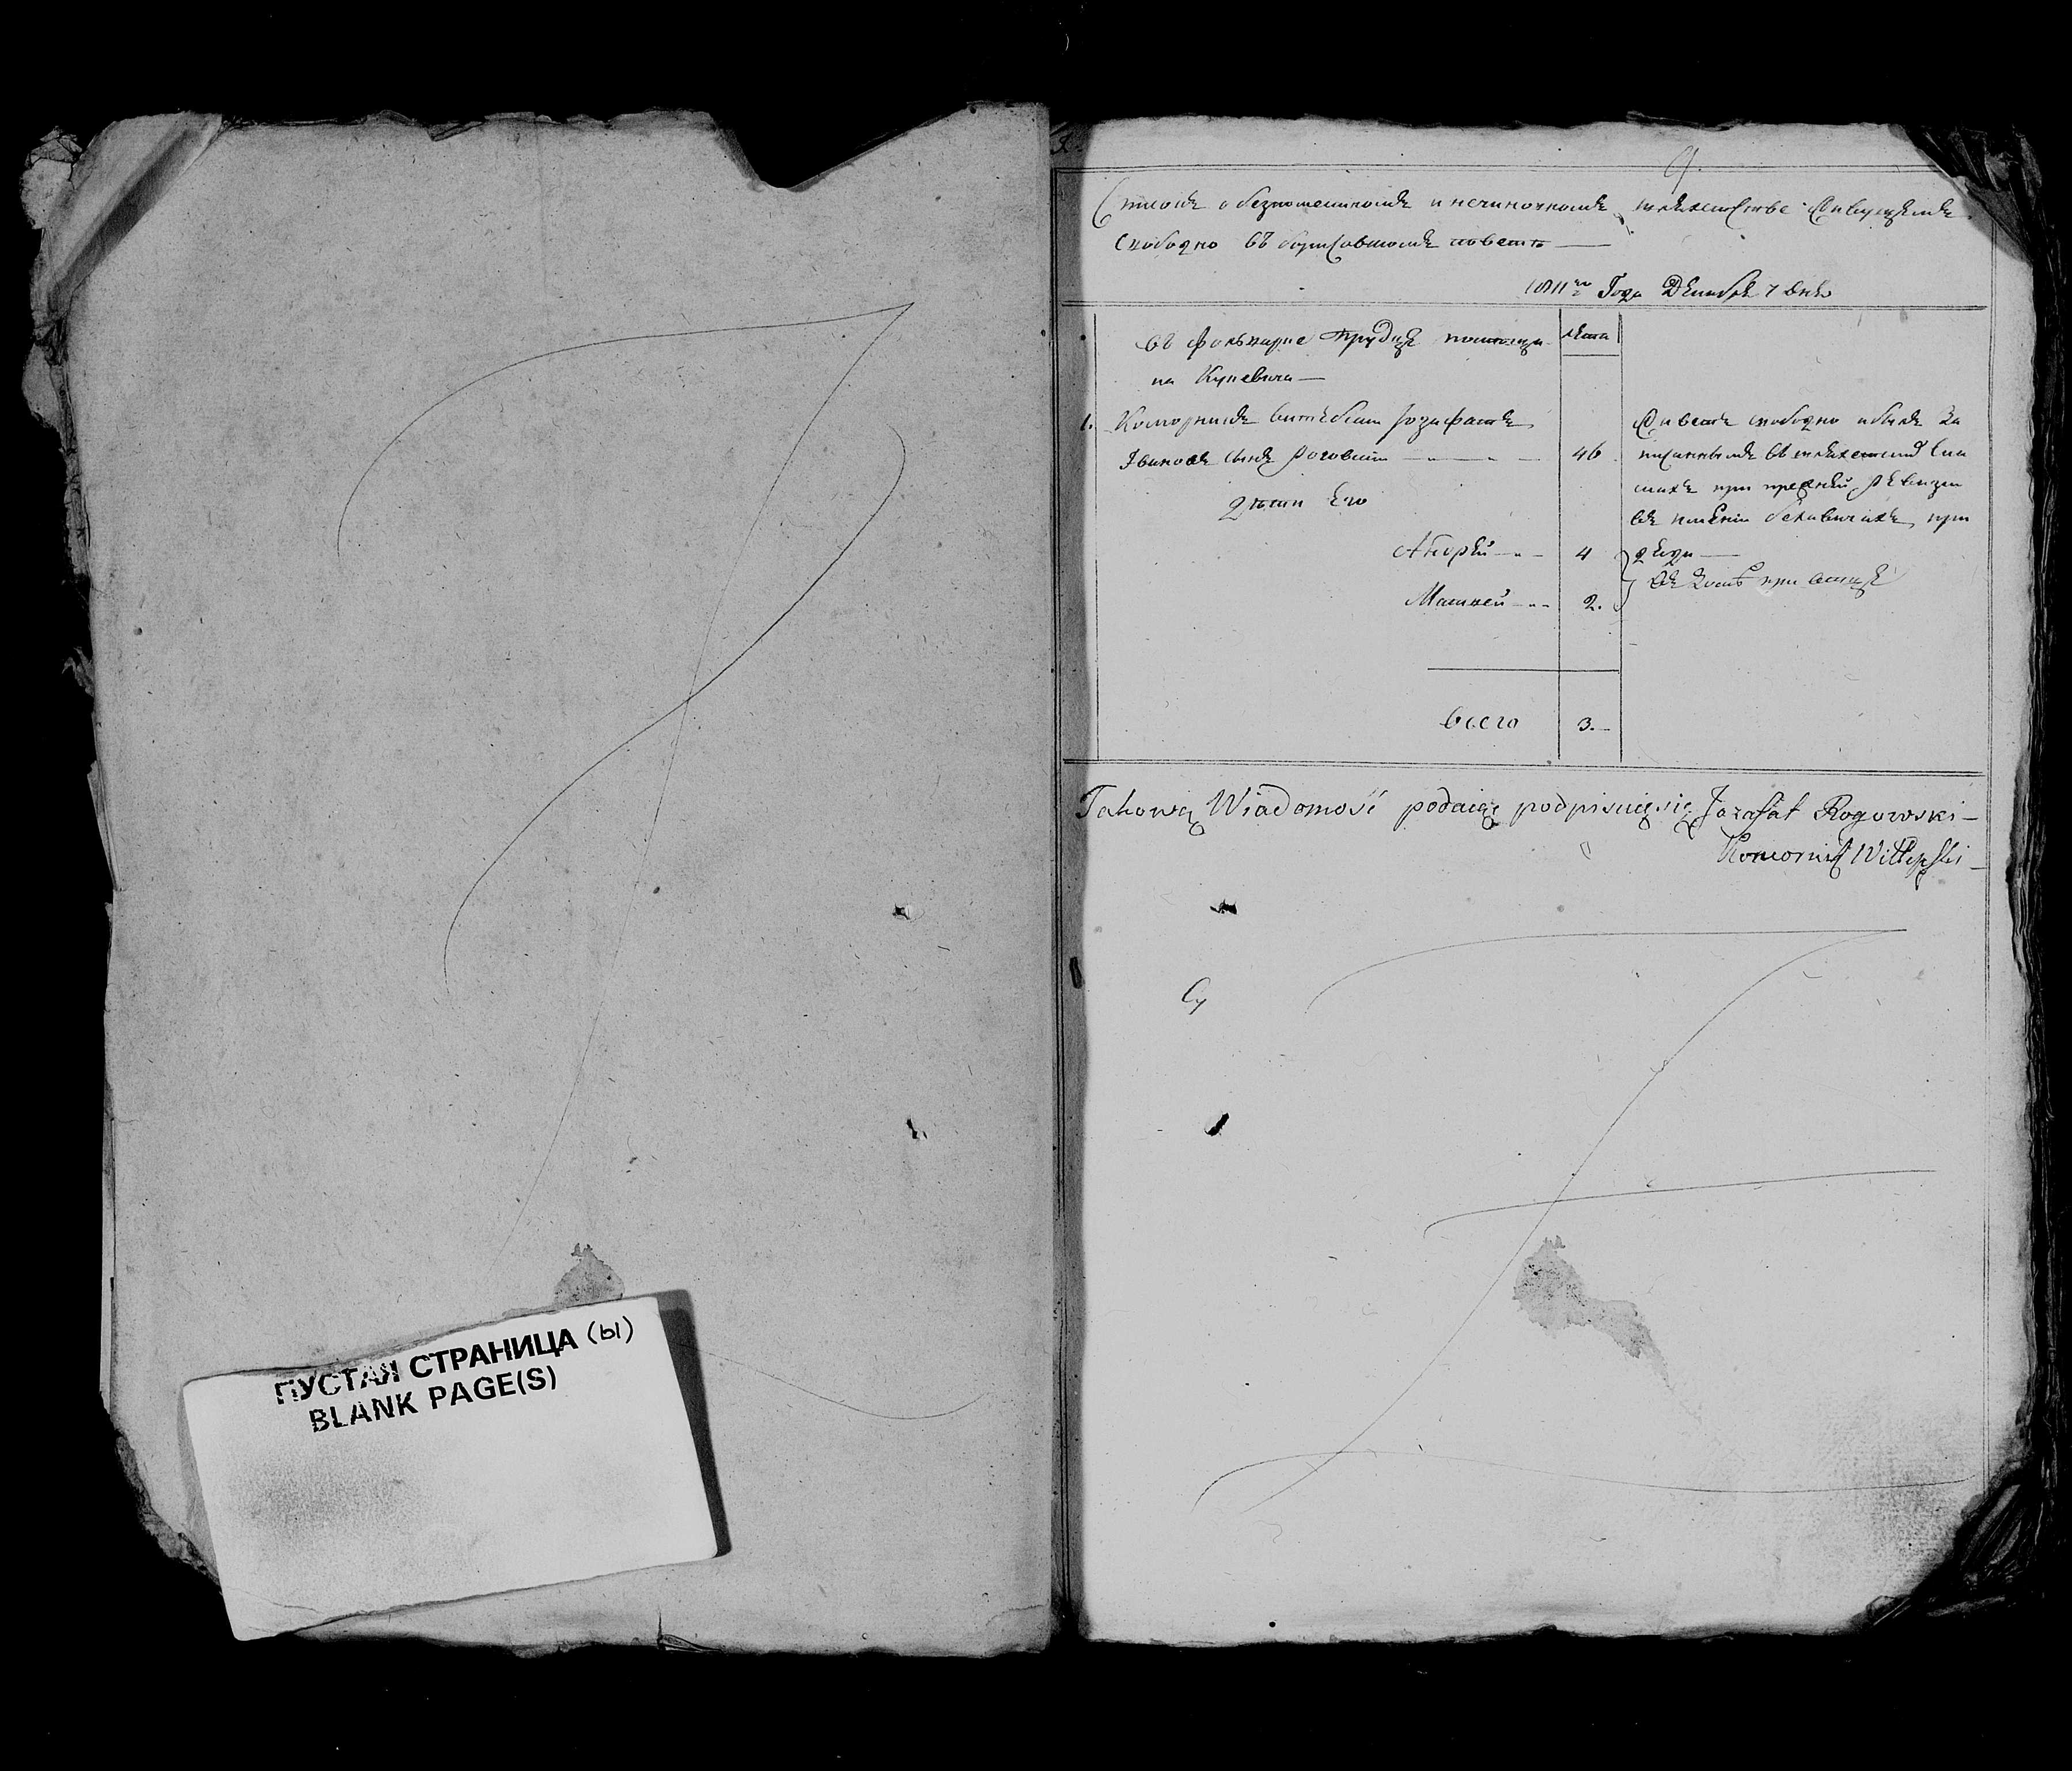 ПУСТАЯ СТРАНИЦА (ы)
BLANK PAGE(S)
9
Списокъ о безпоместномъ и нечиновномъ шляхетстве живущемъ
свободно въ борисовскомъ повете
1811го Года Декабря 7 дня
въ фольварке Прудце
лета
на Куневича
1. Коморникъ витебский Іозафатъ
Ивановъ сынъ Роговский 46
живетъ свободно и былъ за
писаннымъ въ шляхетский спи
сокъ при прежней ревизии
въ имении при
дети Его
Андрей 4
Матвей 2.
при отце
всего 3.
Takową Wiadomość podaięc podpisuięsię Jozafat Rogowski
Komornik Witepski